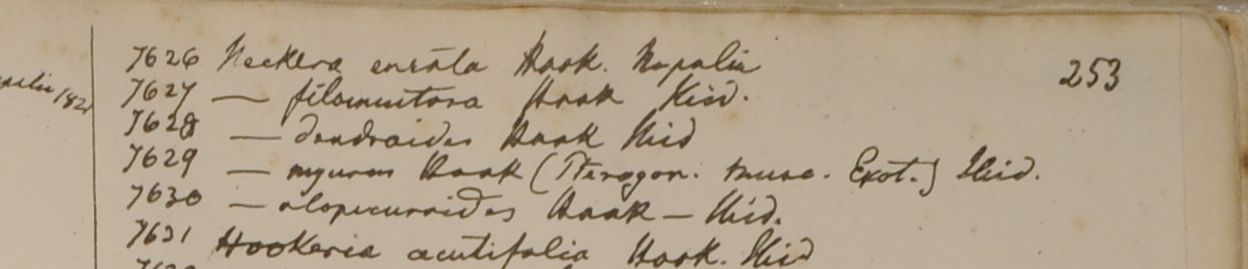 7626 Neckera enrola Hook. Napalia 253
7627 — filamentosa Hook Ibid.
7628 — dendroides Hook Ibid
7629 — myurum Hook (Pterogon. musc. Exot.) Ibid.
7630 — alopecuroides Hook — Ibid.
7631 Hookeria acutifolia Hook. Ibid
1821